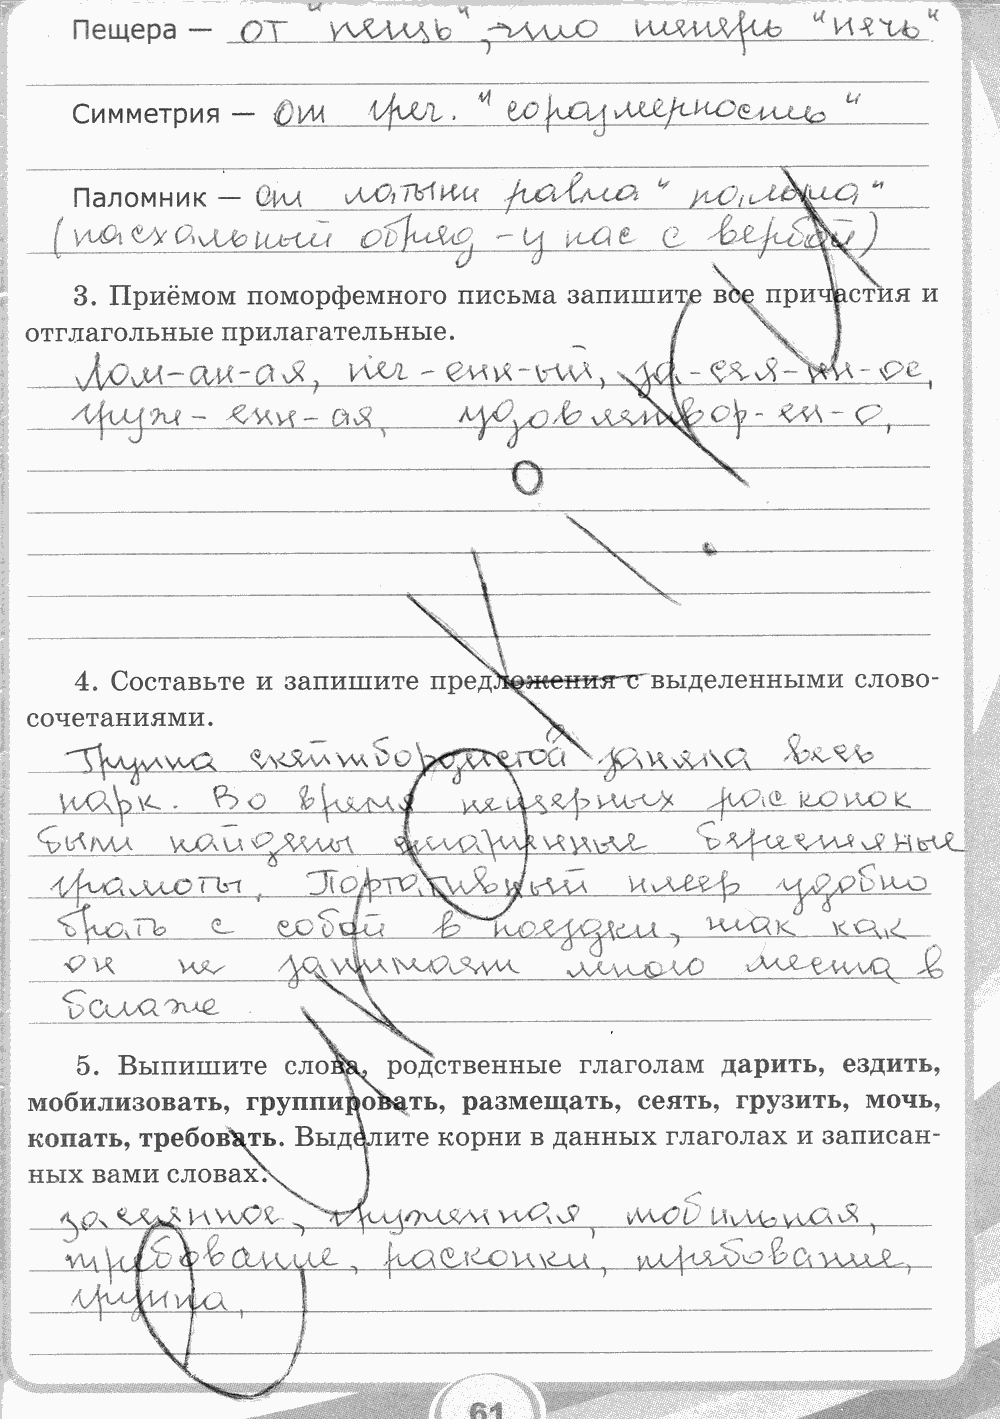 Пещера — от "пещь", что теперь "печь"
Симметрия — от греч. "соразмерность"
Паломник — от латыни равма "пальма"
(пасхальный обряд - у нас с вербой)
3. Приёмом поморфемного письма запишите все причастия и
отглагольные прилагательные.
Лом-ан-ая, печ-енн-ый, за-сея-нн-ое,
груж-енн-ая, удовлетвор-ен-о,
4. Составьте и запишите предложения с выделенными слово-
сочетаниями.
Группа скейтбордистой заняла весь
парк. Во время пещерных раскопок
были найдены берестяные
грамоты. Портативный плеер удобно
брать с собой в поездки, так как
он не занимает много места в
багаже
5. Выпишите слова, родственные глаголам дарить, ездить,
мобилизовать, группировать, размещать, сеять, грузить, мочь,
копать, требовать. Выделите корни в данных глаголах и записан-
ных вами словах.
засеянное, груженная, мобильная,
требование, раскопки, требование,
группа,
61